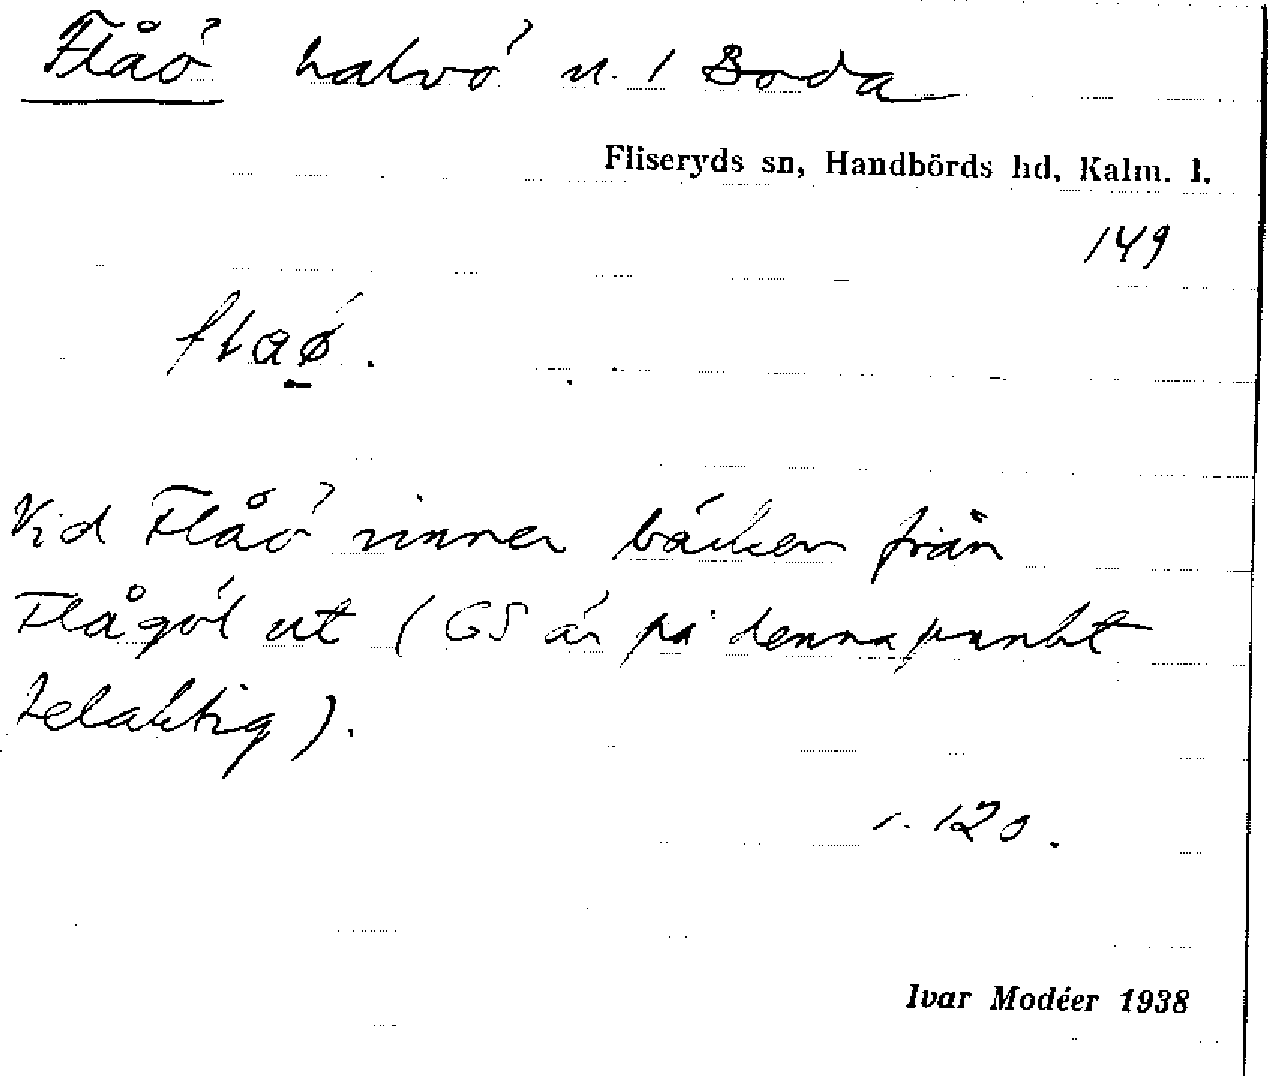 Flåö halvö u. 1 Boda
Fliseryds sn, Handbörds hd, Kalm. l.
149
flaø.
Vid Flåö rinner bäcken från
Flågöl ut (GS är på denna punkt
felaktig).
1. 120.
Ivar Modéer 1938